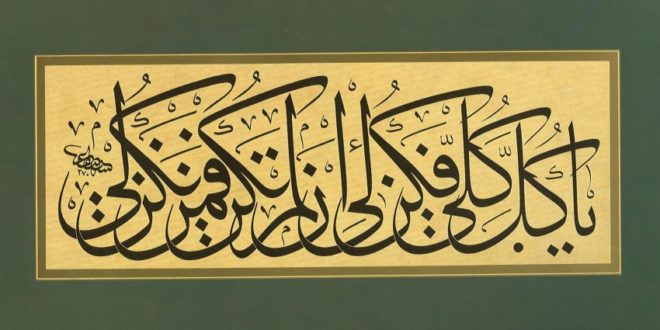 يا كُلَّ كُلّي فكن لي إن لم تكن فمن يكن لي